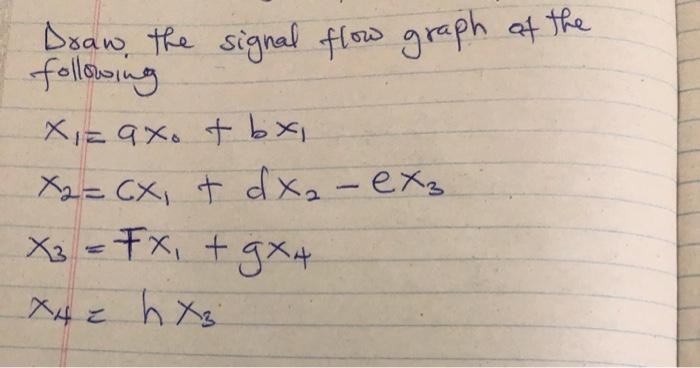 Draw the signal flow graph of the
following
x₁ = ax₀ + bx₁
x₂ = cx₁ + dx₂ - ex₃
x₃ = Fx₁ + gx₄
x₄ = hx₃